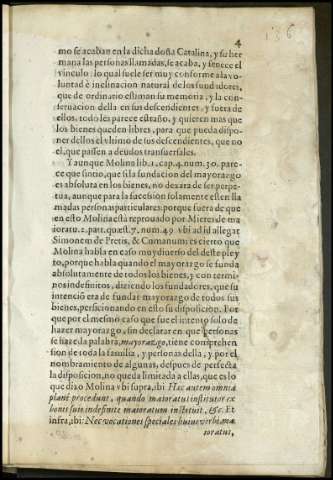 186
4
mo se acaban en la dicha doña Catalina, y su her
mana las personas llamadas, se acaba, y fenece el
vinculo: lo qual suele ser muy conforme a la vo-
luntad è inclinacion natural de los fundadores,
que de ordinario estiman su memoria, y la con-
seruacion della en sus descendientes, y fuera de
ellos, todo les parece estraño, y quieren mas que
los bienes queden libres, para que pueda dispo-
ner dellos el vltimo de sus descendientes, que no
el, que passen a deudos transuersales.
Y aunque Molina lib. 1. cap. 4. num. 30. pare-
ce que sintio, que si la fundacion del mayorazgo
es absoluta en los bienes, no dexara de ser perpe-
tua, aunque para la sucession solamente esten lla
madas personas particulares: porque fuera de que
en esto Molina està reprouado por Mieres de ma
ioratu. 2. part. quæst. 7. num. 49. vbi ad id allegat
Simonem de Pretis, & Cumanum: es cierto que
Molina habla en caso muy diuerso del deste pley
to, porque habla quando el mayorazgo se funda
absolutamente de todos los bienes, y con termi-
nos indefinitos, diziendo los fundadores, que su
intenciō era de fundar mayorazgo de todos sus
bienes, perficionando en esto su disposicion. Por
que por el mesmo caso que fue el intento solo de
hazer mayorazgo, sin declarar en que personas
se haze da palabra, mayorazgo, tiene comprehen
sion de toda la familia, y personas della, y por el
nombramiento de algunas, despues de perfecta
la disposicion, no queda limitada a ellas, que es lo
que dixo Molina vbi supra, ibi: Hæc autem omnia
planè procedunt, quando maioratus institutor ex
bonis suis indefinite maioratum instituit, &c. Et
infra, ibi: Nec vocationes speciales huius verbi ma
ioratus,